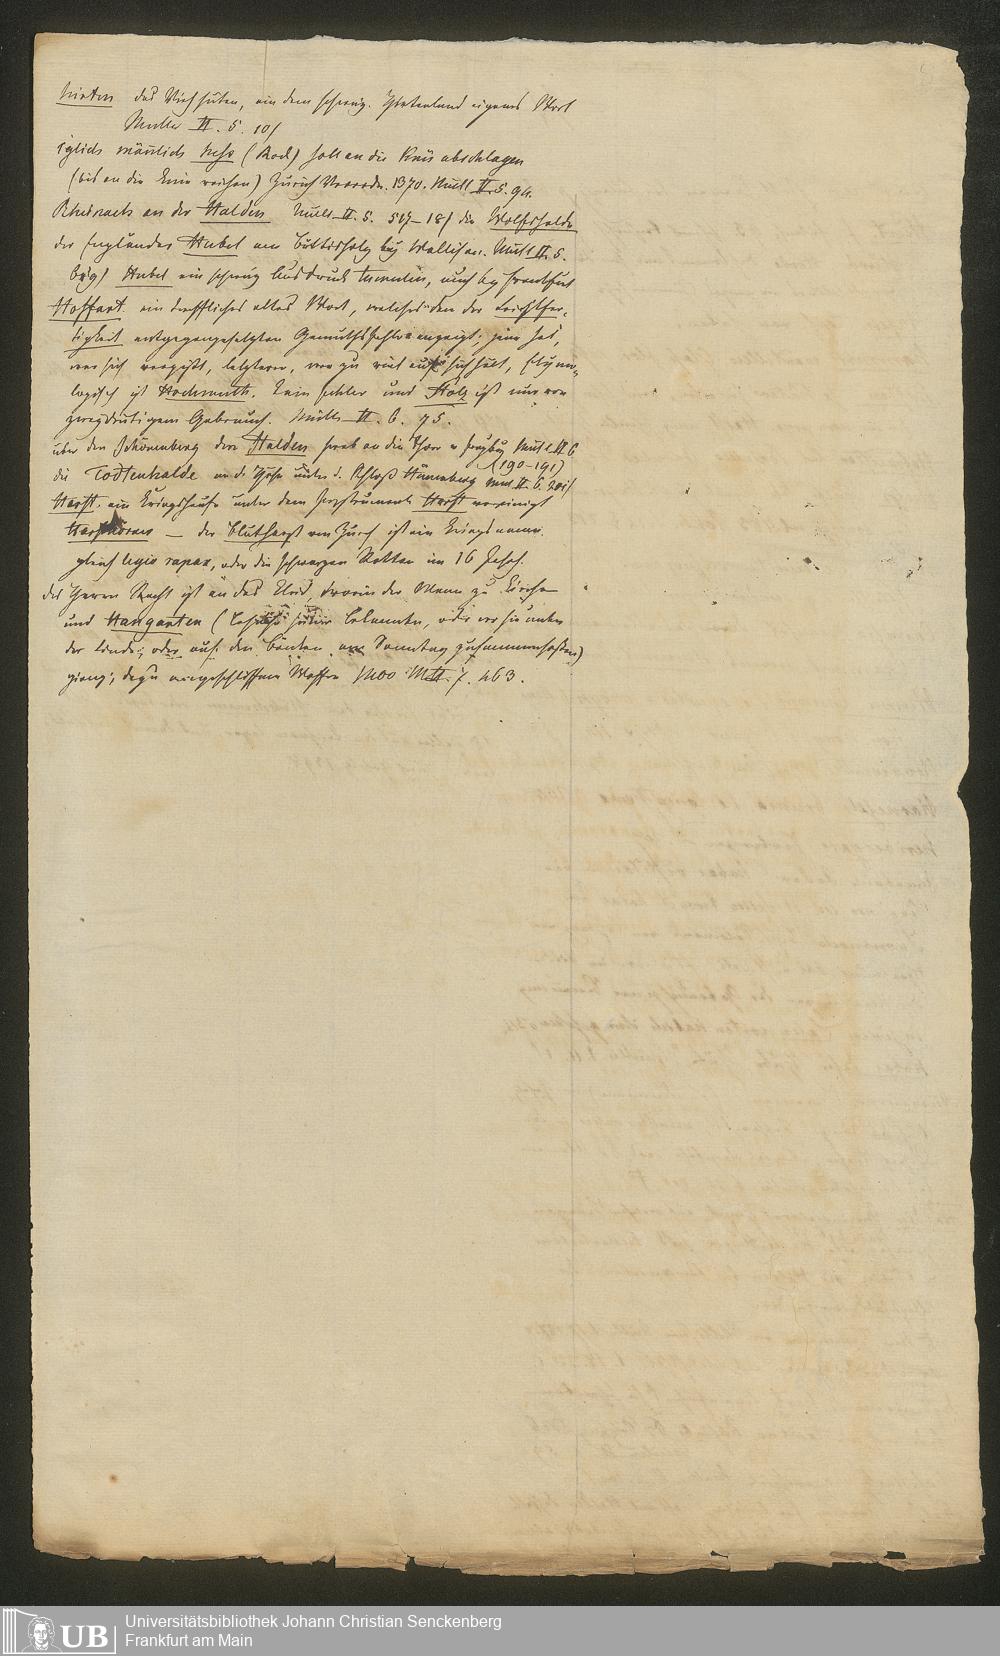 hirten das Vieh hüten, ein dem schweiz. Hirtenland eigenes Wort
Müller II. 5. 101
iglichs mänlichs hess (Rock) soll an die Knü abschlagen
(bis an die Knie reichen) Zürich Verordn. 1370. Müll II. 5. 94.
Rheinach an der Halden Müll. II. 5. 517–181 die Wolfshalde
der Engländer Hubel am Büttisholz bey Wallisau. Müll II. 5.
Hubel ein schweiz Ausdruck tumulus, auch by Frankfurt
Hoffart. ein treffliches altes Wort, welches den der Leichtfer-
tigkeit entgegengesetzten Gemüthsfehler anzeigt; jene hat,
wer sich vergißt, letzterer, wer zu viel auf sich hält, Etymo-
logisch ist Hochmuth. kein Fehler und Stolz ist nur von
zweydeutigem Gebrauch. Müller II. 6. 75.
über den Schönenberg der Halden herab an die Thore v Freyburg Müll II 6
(190–191)
die Todtenhalde an d. Höhe unter d. Schloß Hünenberg Müll II. 6. 201
Harst. ein Kriegshaufe unter dem Instrumente Harst vereinigt
Harsthörner — der Blutharst von Zürch ist ein Kriegsname.
gleich legio rapax, oder die schwarzen Rotten im 16 Jahrh.
des Herrn Recht ist an das Kleid, worin der Mann zu Kirche
und Haugarten (Besuche seiner Bekannten, oder wo sie unter
der Linde, oder auf den Bänken am Sonntag zusammensaßen)
gieng, dazu angeschliffene Waffen 1400 M II. 7. 463.
Universitätsbibliothek Johann Christian Senckenberg
Frankfurt am Main
UB